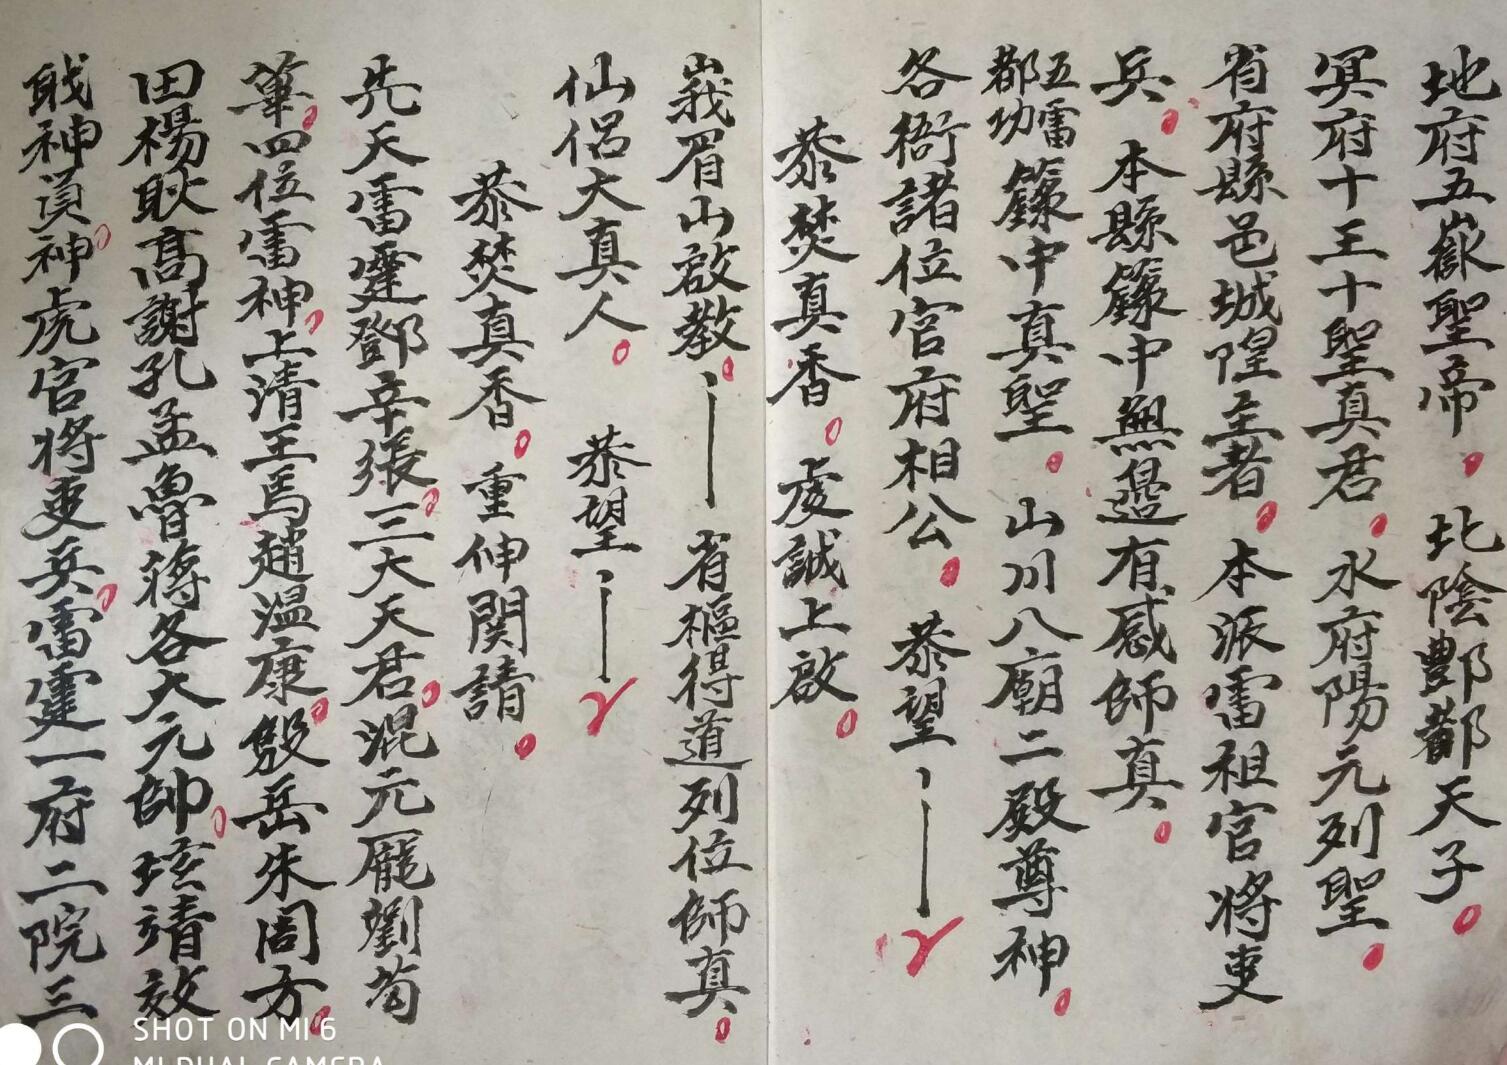 地府五嶽聖帝。北陰酆都天子。
冥府十王十聖真君。水府陽元列聖。
省府縣邑城隍主者。本派雷祖官將吏
兵。本縣籙中無邊有感師真。
五雷都功籙中真聖。山川八廟二殿尊神。
各衙諸位官府相公。恭望
恭焚真香。虔誠上啟。
峩眉山啟教。省樞得道列位師真。
仙侣大真人。恭望
恭焚真香。重伸関請。
先天雷霆鄧辛張。三大天君。混元龎劉苟
畢。四位雷神。上清王馬趙温康。殷岳朱周方。
田楊耿髙謝孔孟魯蒋各大元帥。靖效
戝神貟神。虎官将吏兵。雷霆一府二院三
SHOT ON MI 6
MI DUAL CAMERA